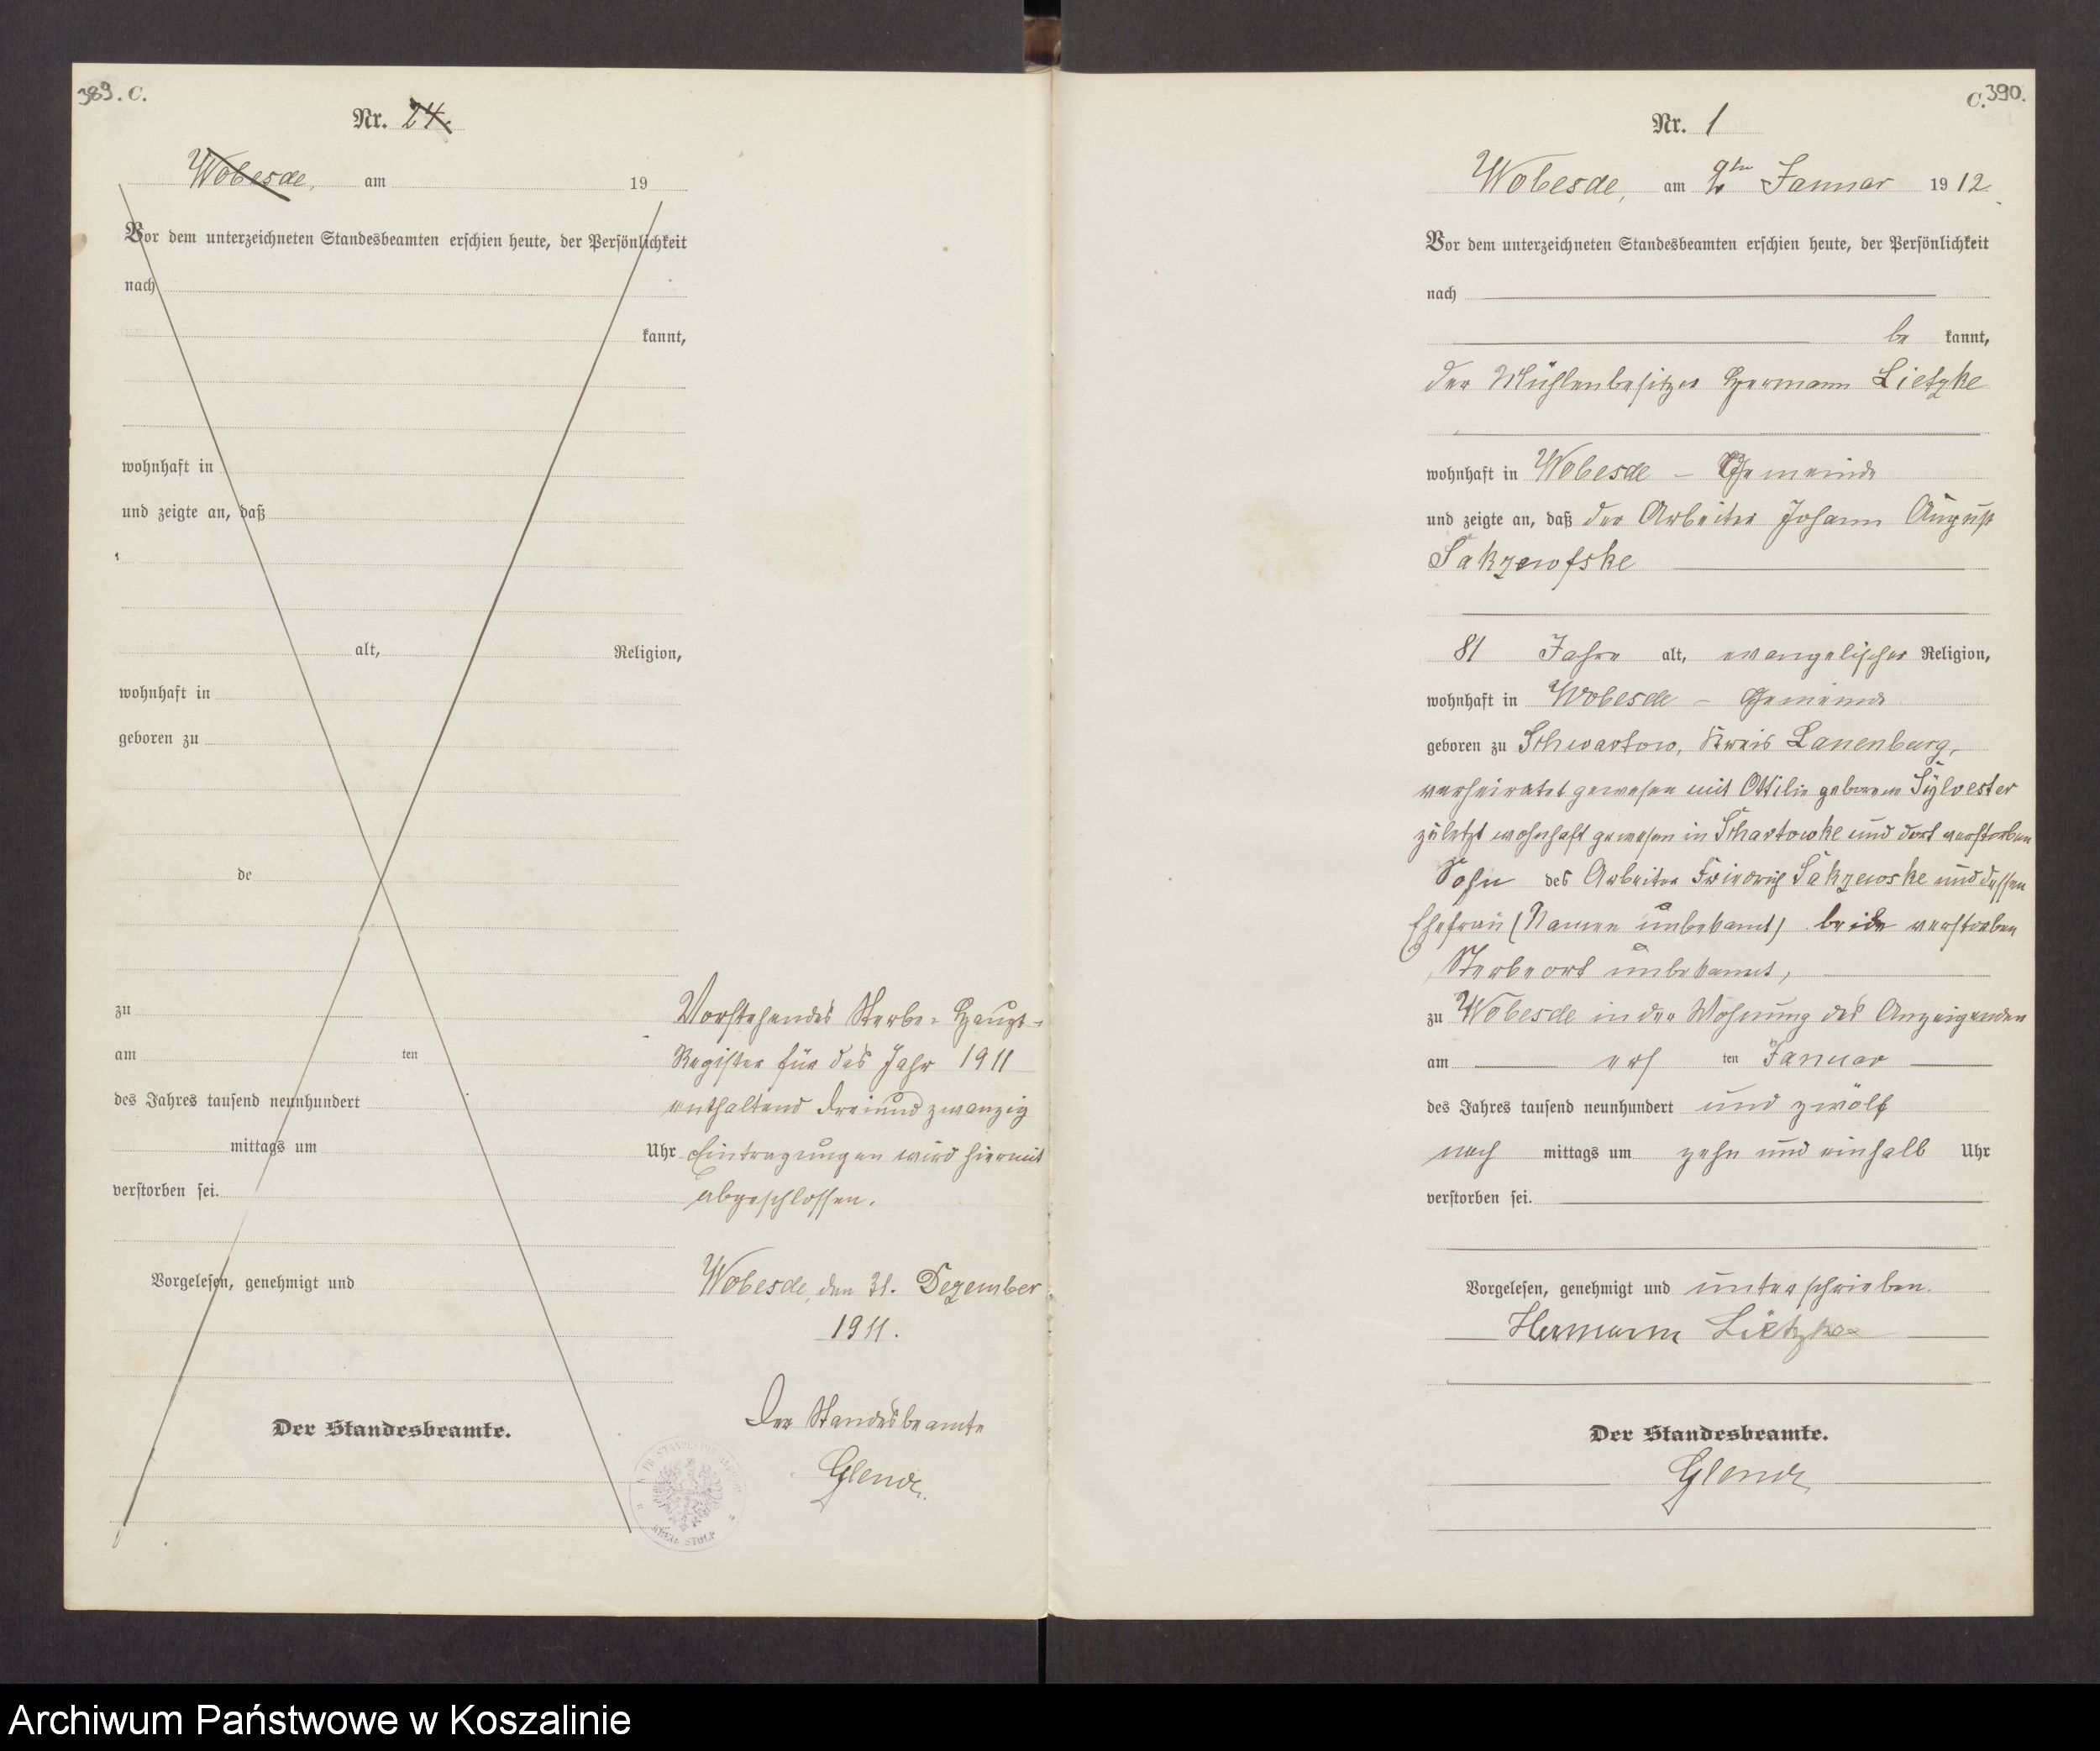 389. C.
Nr. 24.
Wobesde, am 19
Vor dem unterzeichneten Standesbeamten erschien heute, der Persönlichkeit
nach
kannt,
wohnhaft in
und zeigte an, daß
alt, Religion,
wohnhaft in
geboren zu
de
zu
am ten
des Jahres tausend neunhundert
mittags um Uhr
verstorben sei.
Vorgelesen, genehmigt und
Der Standesbeamte.
Vorstehendes Sterbe-Haupt-
Register für das Jahr 1911
enthaltend dreiundzwanzig
Eintragungen wird hiermit
abgeschlossen.
Wobesde, den 31. Dezember
1911.
Der Standesbeamte
KREIS STOLP
C. 390.
Nr. 1
Wobesde, am 2ten Januar 1912
Vor dem unterzeichneten Standesbeamten erschien heute, der Persönlichkeit
nach
be kannt,
der Mühlenbesitzer Hermann Lietzke
wohnhaft in Wobesde - Gemeinde
und zeigte an, daß der Arbeiter Johann August
Sakzewfske
81 Jahre alt, evangelischer Religion,
wohnhaft in Wobesde - Gemeinde
geboren zu Schwartow, Kreis Lauenburg,
verheiratet gewesen mit Ottilie geborene Sylvester
zuletzt wohnhaft gewesen in Schartowke und dort verstorben
Sohn des Arbeiter Friedrich Sakzewske und dessen
Ehefrau (Namen unbekannt) beide verstorben
Sterbeort unbekannt,
zu Wobesde in der Wohnung des Anzeigenden
am ers ten Januar
des Jahres tausend neunhundert und zwölf
nach mittags um zehn und einhalb Uhr
verstorben sei.
Vorgelesen, genehmigt und unterschrieben.
Hermann Lietzke
Der Standesbeamte.
Archiwum Państwowe w Koszalinie